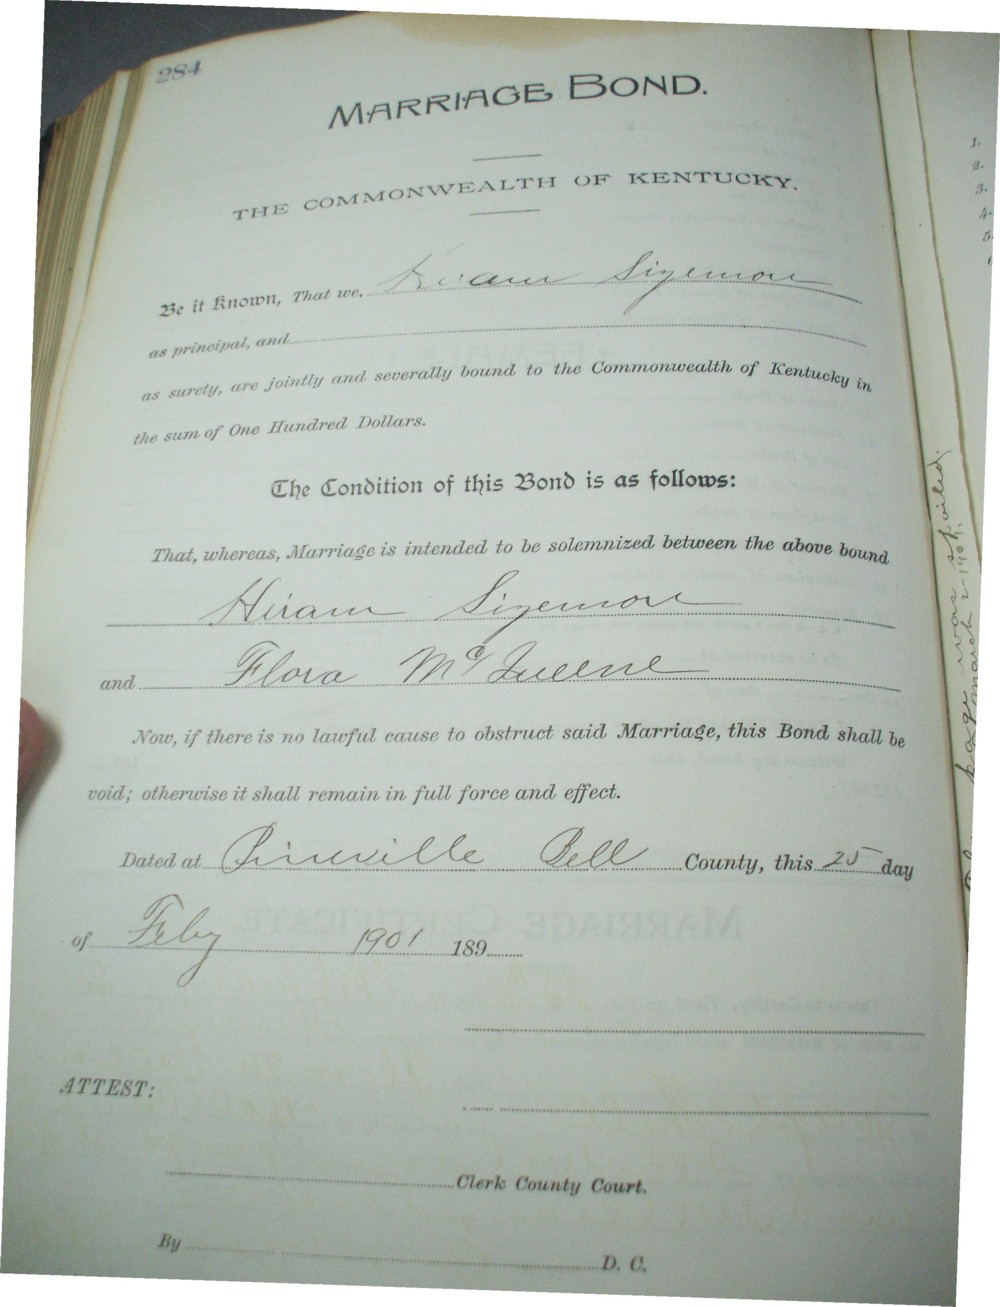 284
MARRIAGE BOND.
THE COMMONWEALTH OF KENTUCKY.
Be it Known, That we, Hiram Sizemore
as principal, and
as surety, are jointly and severally bound to the Commonwealth of Kentucky in
the sum of One Hundred Dollars.
The Condition of this Bond is as follows:
That, whereas, Marriage is intended to be solemnized between the above bound
Hiram Sizemore
and Flora McQueene
Now, if there is no lawful cause to obstruct said Marriage, this Bond shall be
void; otherwise it shall remain in full force and effect.
Dated at Pineville Bell County, this 25 day
of Feby 1901 189
ATTEST:
Clerk County Court.
By D. C.
1.
2.
3.
4.
5.
page was spoiled
March 2-1901.